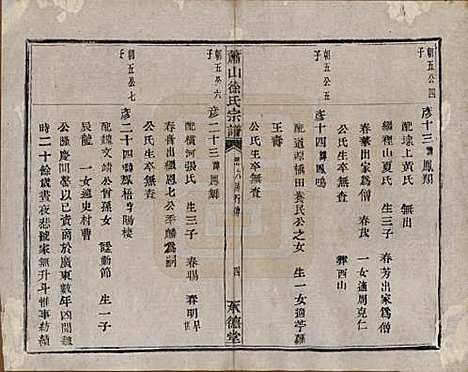 朝五公四
子
彥十三諱鳳翔
配墟上黃氏 無出
繼裡山夏氏 生三子 春芳出家爲僧
春華出家爲僧 春茂 一女適周克仁
公氏生卒無查 葬西山
朝五公五
子
彥十四諱鳳鳴
配道源橋田養民公之女 生一子
王壽
公氏生卒無查
蕭山徐氏宗譜
四
承德堂
朝五公六
子
彥二十三諱鳳舞
配橫河張氏 生三子 春暘 春明早
春喬出繼恩七公季麟爲嗣
公氏生卒無查
朝五公七
子
彥二十四諱鳳梧號陽棲
配魏文靖公曾孫女 生一子
辰 一女適史村曹
公隆慶間嘗以已資商於廣東數年四閱
時二十餘歲晝夜悲號家無升斗惟事紡績